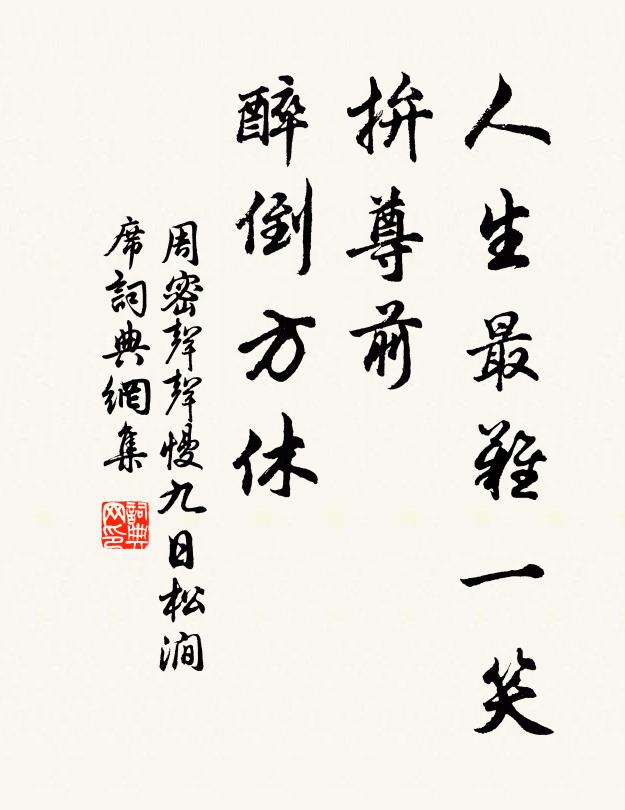 人生最難一笑
拚尊前
醉倒方休
周密聲聲慢九日松澗
席詞典網集
詞典网印